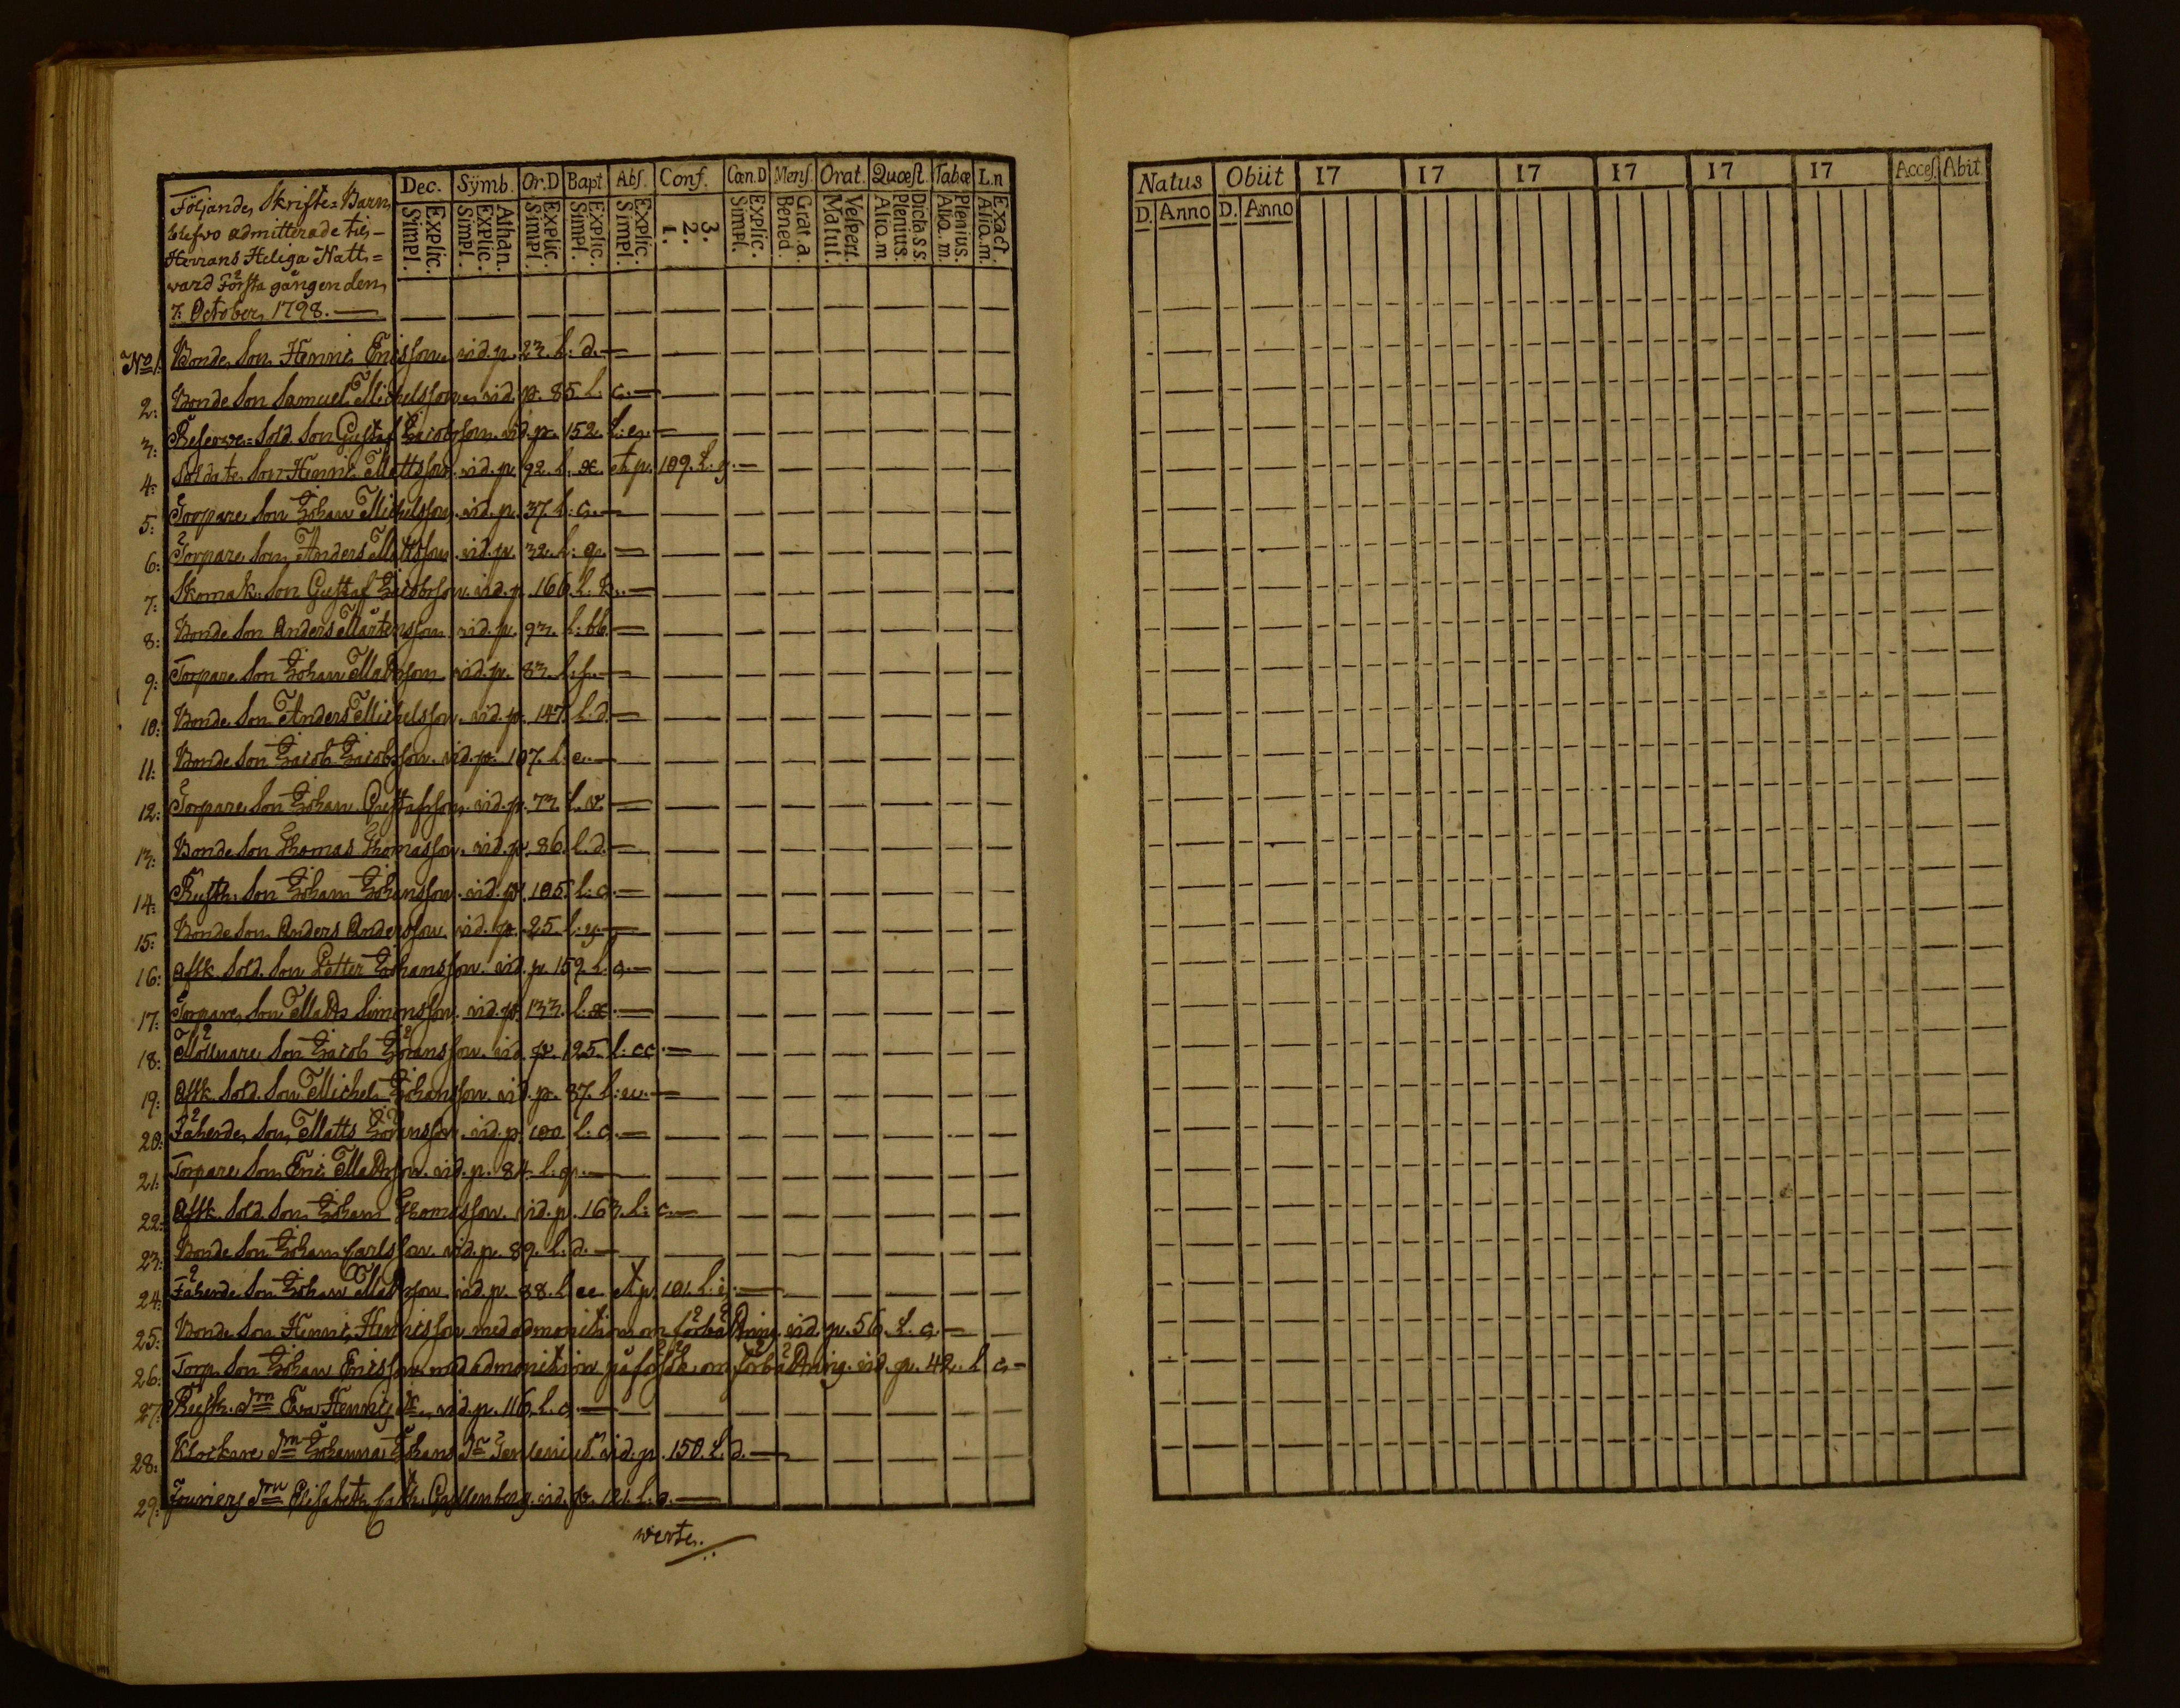 Följande Skrifte-Barn
blefvo admitterade til
Herrans Heliga Natt=
vard Första gången den
7 October 1798.
Dec. Symb. Or.D Bapt. Abs. Conf. Cœn.D Mens. Orat. Quæst. Tabæ L.n
Simpl. Explic. Simpl. Explic. Athan. Simpl. Explic. Simpl. Explic. Simpl. Explic. 1. 2. 3. Simpl. Explic. Bened. Grat.a. Matut. Vespert. Aliq.m Plenius. Dicta s.s. Aliq.m. Plenius. Aliq.m. Exact.
No 1: Bonde Son Henric Ericsson. vid. p. 23. L: d.
2: Bonde Son Samuel Michelsson. vid. p. 85. L. c.
3: Reserve-Sold. Son Gustaf Jacobsson. vid. p. 152. L: g.
4: Soldate Son Henric Mattsson. vid. p. 92. L. æ. et p. 109. L. g.
5: Torpare Son Johan Michelsson. vid. p. 37. L: c.
6: Torpare Son Anders Mattsson. vid. p. 32. L: q.
7: Skomak. Son Gustaf Jacobsson. vid. p. 166. L: k.
8: Bonde Son Anders Mårtensson vid. p. 93. L: bb.
9: Torpare Son Johan Mattsson vid. p. 83. L. f.
10: Bonde Son Anders Michelsson. vid. p. 147. L. d.
11: Bonde Son Jacob Jacobsson. vid. p. 107. L. e.
12: Torpare Son Johan Gustafsson. vid. p. 73. L. v.
13: Bonde Son Thomas Thomasson. vid. p. 86. L. d.
14: Rusth. Son Johan Johansson. vid. p. 105. L: c.
15: Bonde Son Anders Andersson vid. p. 25. L: y.
16: Afsk. Sold. Son Petter Johansson. vid. p. 159. L. c.
17: Torpare Son Matts Simonsson. vid. p. 133. L. æ.
18: Möllnare Son Jacob Göransson. vid. p. 125. L: cc.
19: Afsk. Sold. Son Michel Johansson. vid. p. 37. L: u.
20: Fäherde Son Matts Göransson. vid. p. 100 L: c.
21: Torpare Son Eric Mattsson. vid. p. 84. L: q.
22: Afsk. Sold. Son Johan Thomasson. vid. p. 163. L: c.
23: Bonde Son Johan Carlsson vid. p. 89. L. d.
24: Fäherde Son Johan Mattsson vid. p. 88. L. ee et p. 101. L. i.
25: Bonde Son Henric Henricsson med admonition om förbättring. vid. p. 56. L. c.
26: Torp. Son Johan Ericsson med admonition på försök om förbättring. vid. p. 42. L. c.
27: Rusth. Drn Eva Henrics Dr. vid. p. 116. L. c.
28: Klockare Drn Johanna Johans Dr vid. p. 150. L. d.
29: Fouriers Drn Elisabeth Cath. Gyllenberg. vid. p. 121. L. a.
werte.
Natus Obiit 17 17 17 17 17 17 Acces. Abiit
D. Anno D. Anno